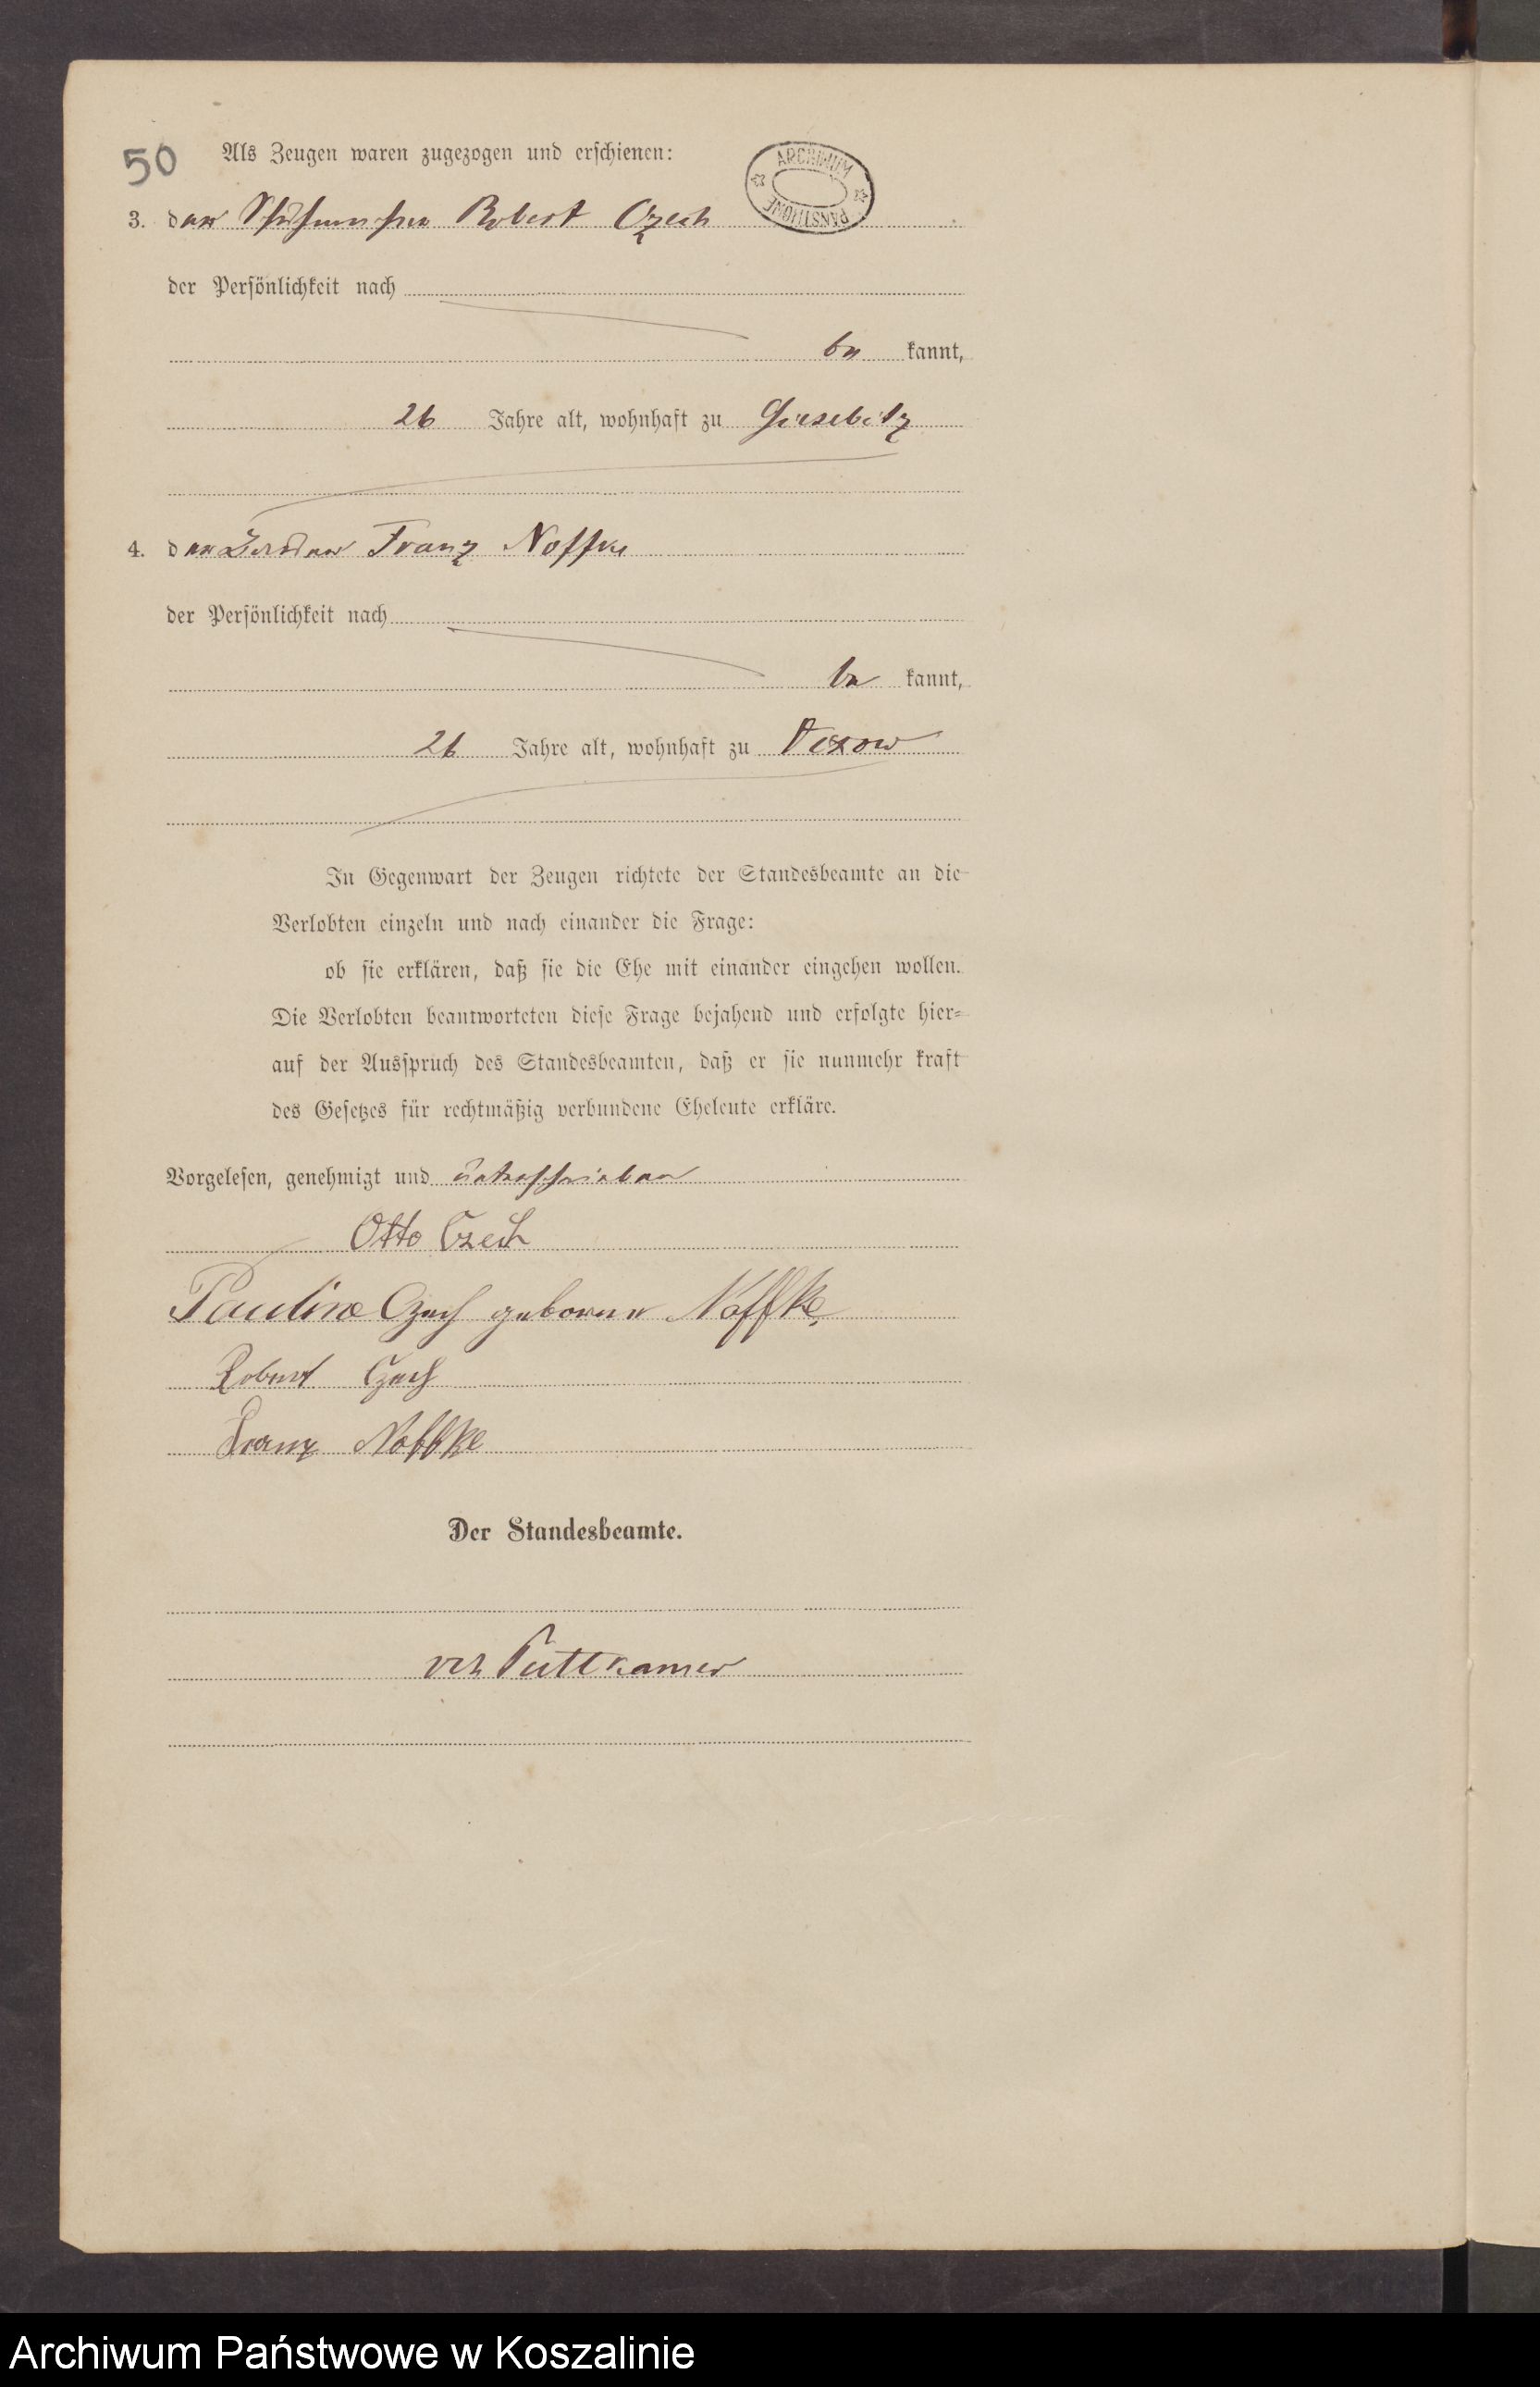 50
Als Zeugen waren zugezogen und erschienen:
ARCHIWUM PAŃSTWOWE
3. der Robert Czech
der Persönlichkeit nach
be kannt,
26 Jahre alt, wohnhaft zu Giesebitz
4. der Franz Noffke
der Persönlichkeit nach
be kannt,
26 Jahre alt, wohnhaft zu Vixow
In Gegenwart der Zeugen richtete der Standesbeamte an die
Verlobten einzeln und nach einander die Frage:
ob sie erklären, daß sie die Ehe mit einander eingehen wollen.
Die Verlobten beantworteten diese Frage bejahend und erfolgte hier=
auf der Ausspruch des Standesbeamten, daß er sie nunmehr kraft
des Gesetzes für rechtmäßig verbundene Eheleute erkläre.
Vorgelesen, genehmigt und unterschrieben
Otto Czech
Pauline Czech geborene Noffke
Robert Czech
Franz Noffke
Der Standesbeamte.
von Puttkamer
Archiwum Państwowe w Koszalinie